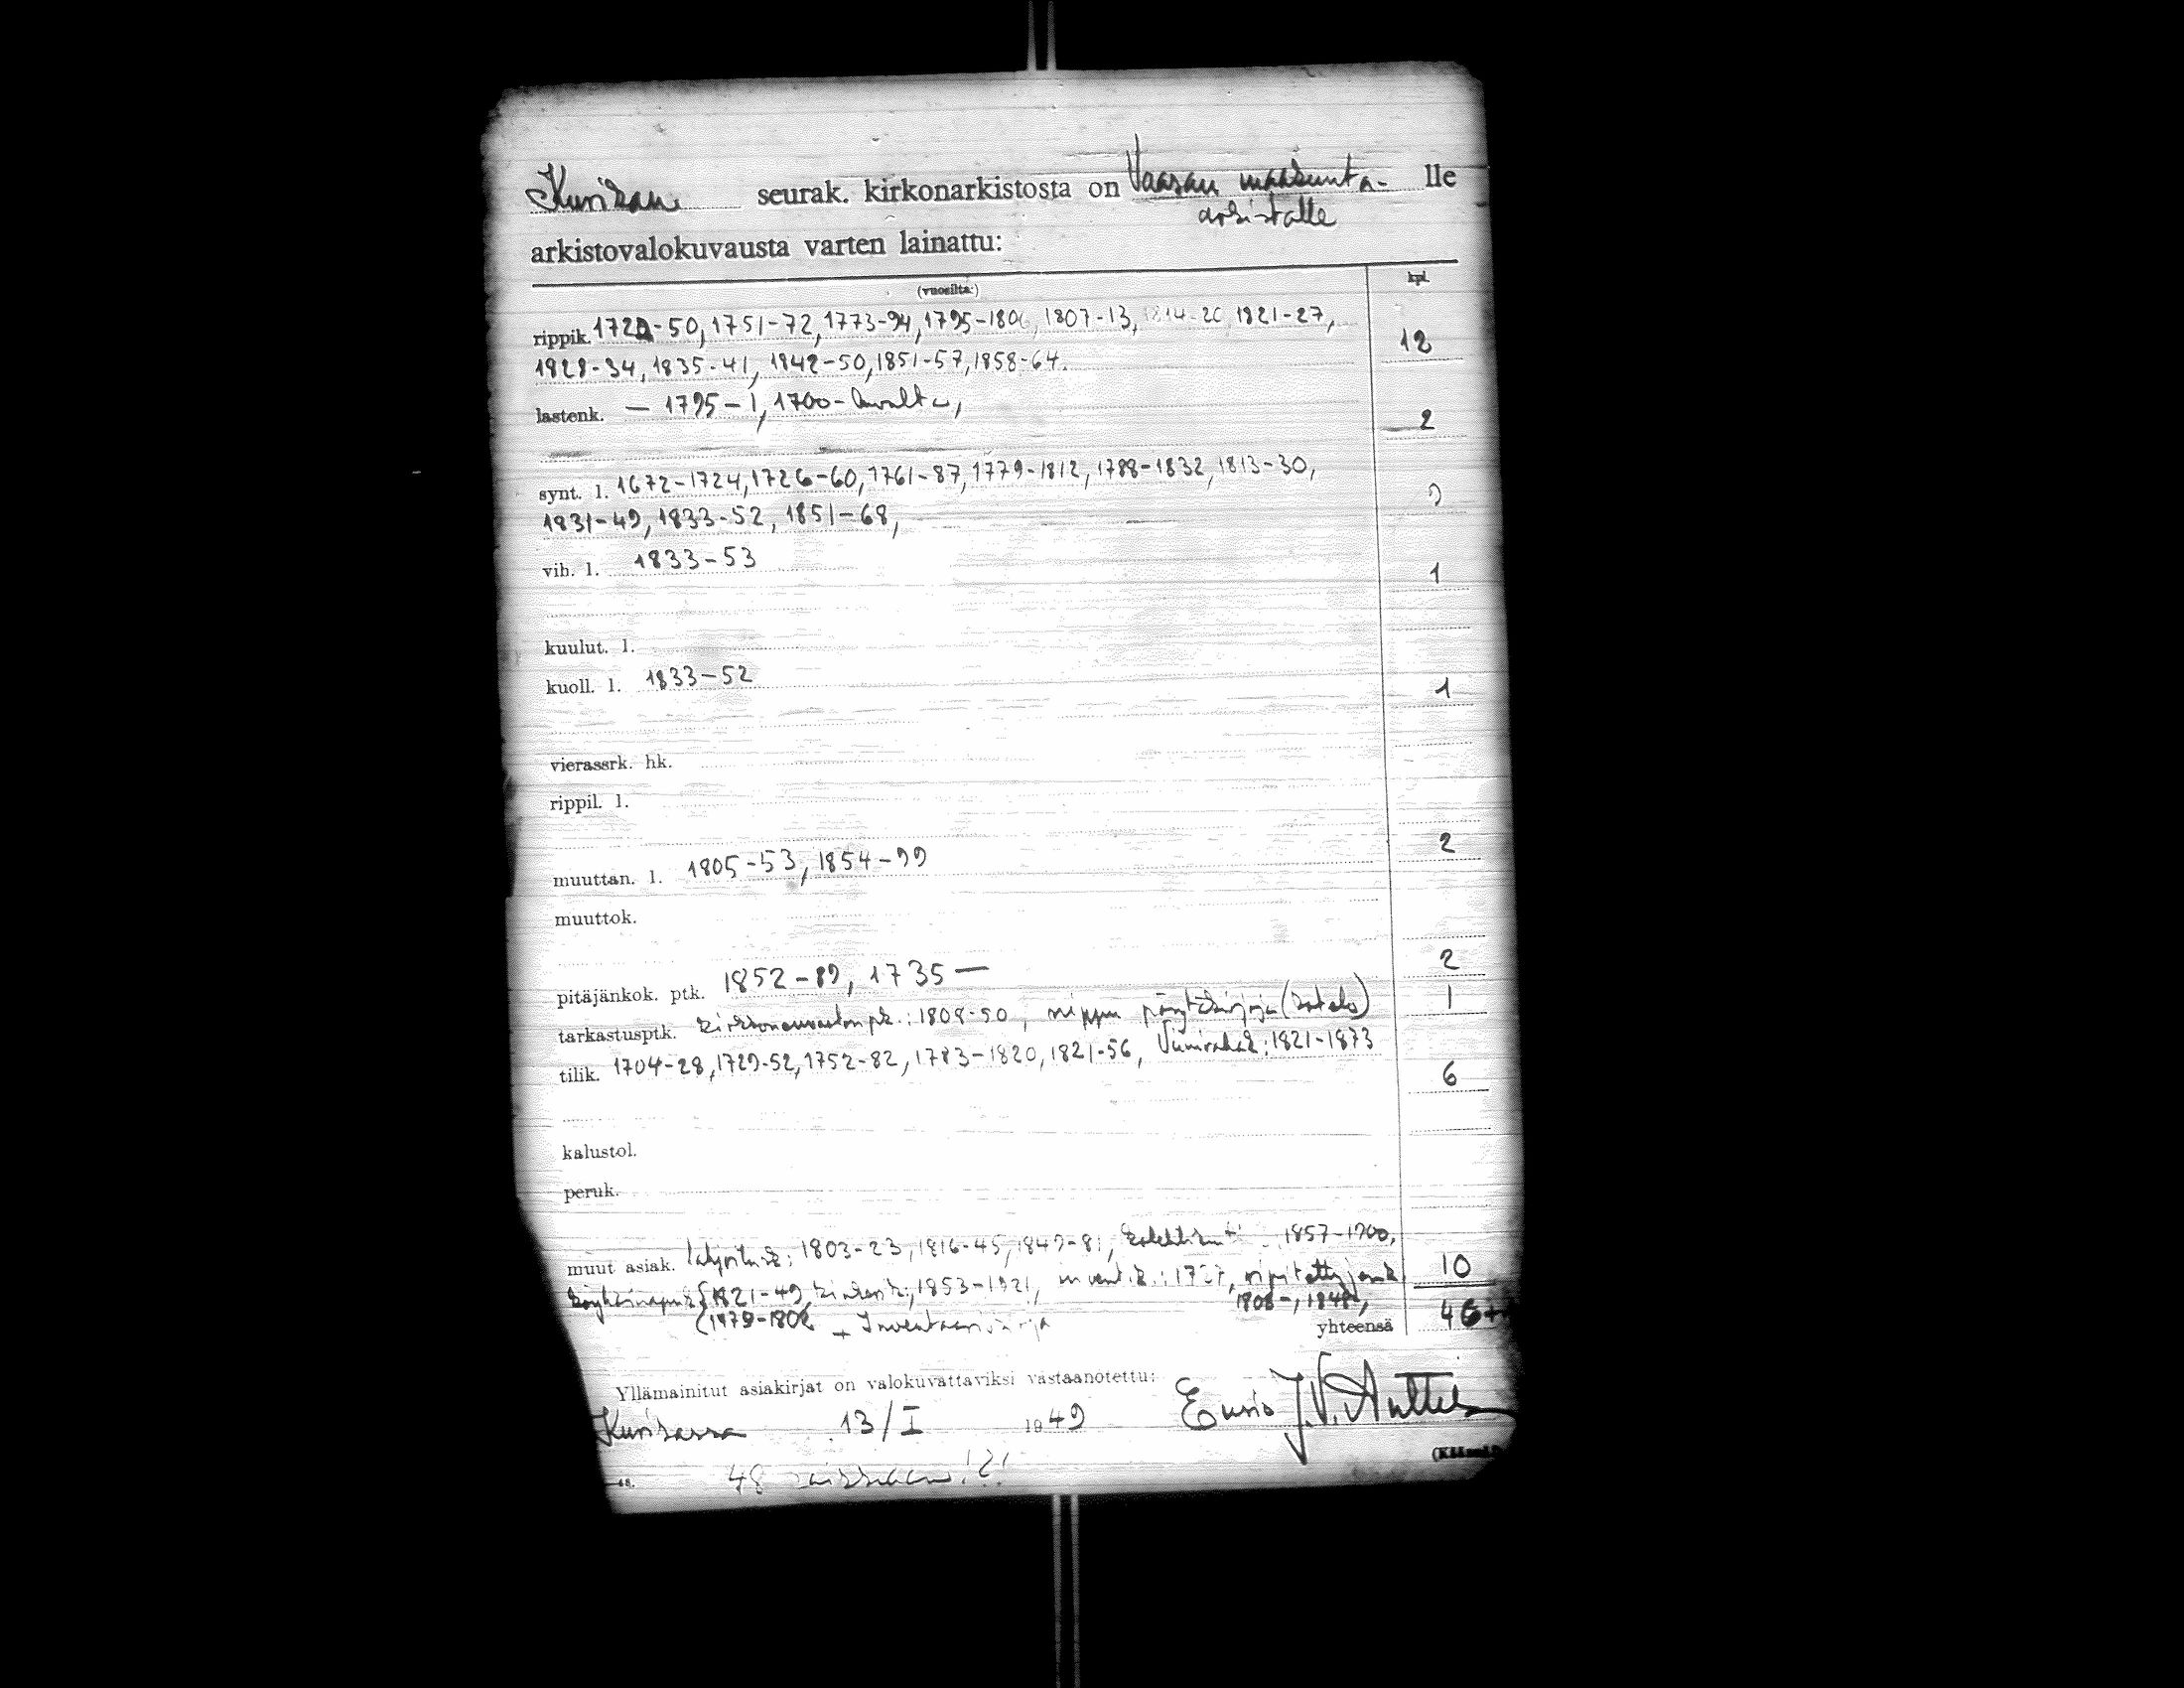 Kurikan seurak. kirkonarkistosta on Vaasan maakunta- lle
arkistolle
arkistovalokuvausta varten lainattu:
(vuosilta:) kpl.
rippik. 1722-50, 1751-72, 1773-94, 1795-1806, 1807-13, 1814-20, 1821-27,
1828-34, 1835-41, 1842-50, 1851-57, 1858-64. 12
lastenk. — 1795-1, 1700-luvulta, 2
synt. l. 1672-1724, 1726-60, 1761-87, 1779-1812, 1788-1832, 1813-30,
1831-49, 1833-52, 1851-68, 9
vih. l. 1833-53 1
kuulut. l.
kuoll. l. 1833-52 1
vierassrk. hk.
rippil. l.
muuttan. l. 1805-53, 1854-99 2
muuttok.
pitäjänkok. ptk. 1852-89, 1735— 2
tarkastusptk. kirkonneuvoston pk.: 1808-50, nippu pöytäkirjoja (kotelo) 1
tilik. 1704-28, 1729-52, 1752-82, 1783-1820, 1821-56, Viinirahak: 1821-1873 6
kalustol.
peruk.
muut asiak. lahjoitusk: 1803-23, 1816-45, 1849-81, 1857-1900,
1821-49, 1853-1921, invent.k.: 1727, 10
1808-, 1848,
+ Inventaarikirja yhteensä 46+
Yllämainitut asiakirjat on valokuvattaviksi vastaanotettu:
Kurikassa 13/I 1949 Ensio J.V. Anttila
48